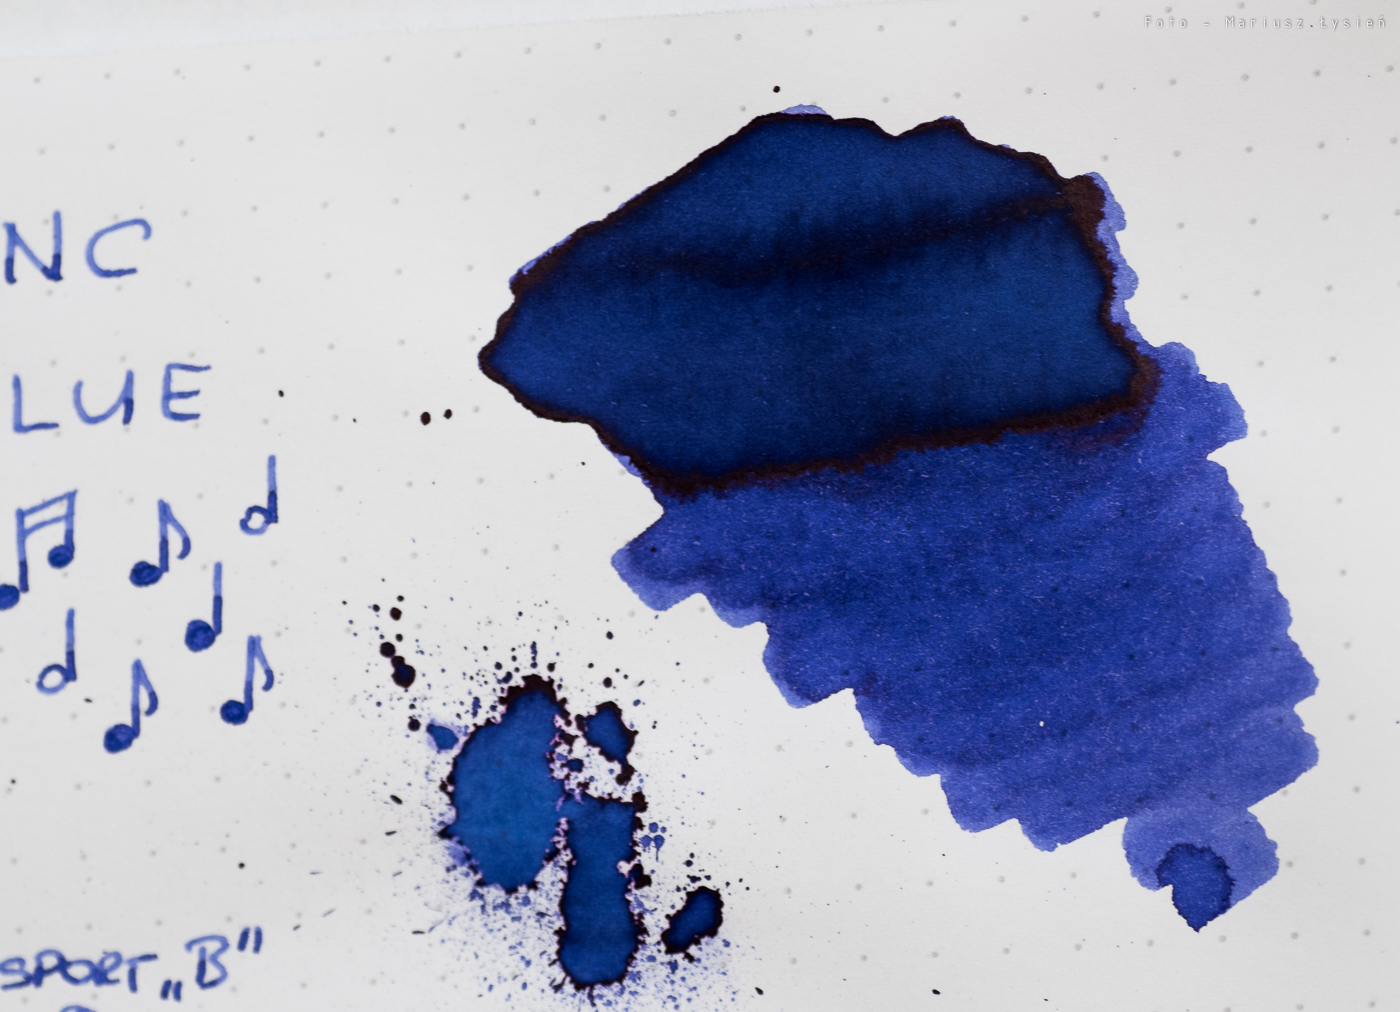 Foto - Mariusz.Łysień
NC
LUE
SPORT „B"